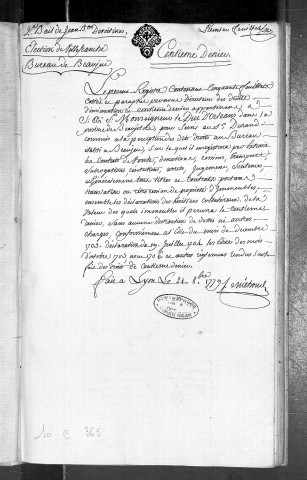 Bail de Jean B.
Premier Feuillet
Election de Villefranche
Bureau de Beaujeu
Centieme Denier.
Le present Registre Contenant Cinquante feuillets
Cotté et paraphé par nous directeur des droits
d'insinuation et centieme denier appartenant à
S. A. S. Monseigneur le Duc d'Orleans dans la
province de Beaujolois pour servir au Sr. Durand
commis à la perception des droits au Bureau
etabli a Beaujeu, à l'effet d'y enregistrer par
les Contrats de Vente, donations, cession, transport
subrogations, Jugemens, Sentences
et generalement tous titres et Contrats portant
translation ou retrocession de propriété d'Immeubles,
ensemble les déclarations des héritiers collateraux, de la
valeur des quels immeubles il percevra le centieme
denier, sans aucune distraction de dettes ni autres
charges, conformément à l'Edit du mois de decembre
1703. declaration du 19. Juillet 1704. les Edits des mois
d'octobre 1705 aout 1706 et autres reglemens rendus sur le
fait des droits de Centieme denier.
fait a Lyon Le 21. 8.bre 1779
10 C 365